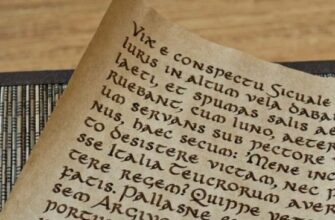 Vix e conspectu Sicuale
luris in altum vela daba
laeti, et spumas salis ae
ruebant, cum Iuno, aeter
um servans sub pectore
nus, haec secum: Mene inc
to desistere victam, nec
sse Italia Teucrorum aver
tere regem? Quippe vet
fatis. Pallasne
sem Argiv